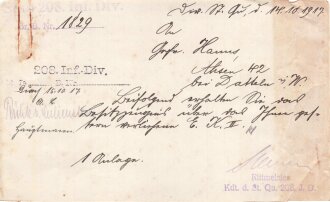 Div. St. Qu., d. 14.10.1917.
208. Inf. Div.
Nr. 1829
An
Gefr. Hanns
Ahsen 42
bei Datteln i/W.
208. Inf.-Div.
15.10.17
Beifolgend erhalten Sie das
Besitzzeugnis über das Ihnen ge-
stern verliehene E. K. II.
Hauptmann
1 Anlage.
Rittmeister
Kdt. d. St. Qu. 208. J. D.